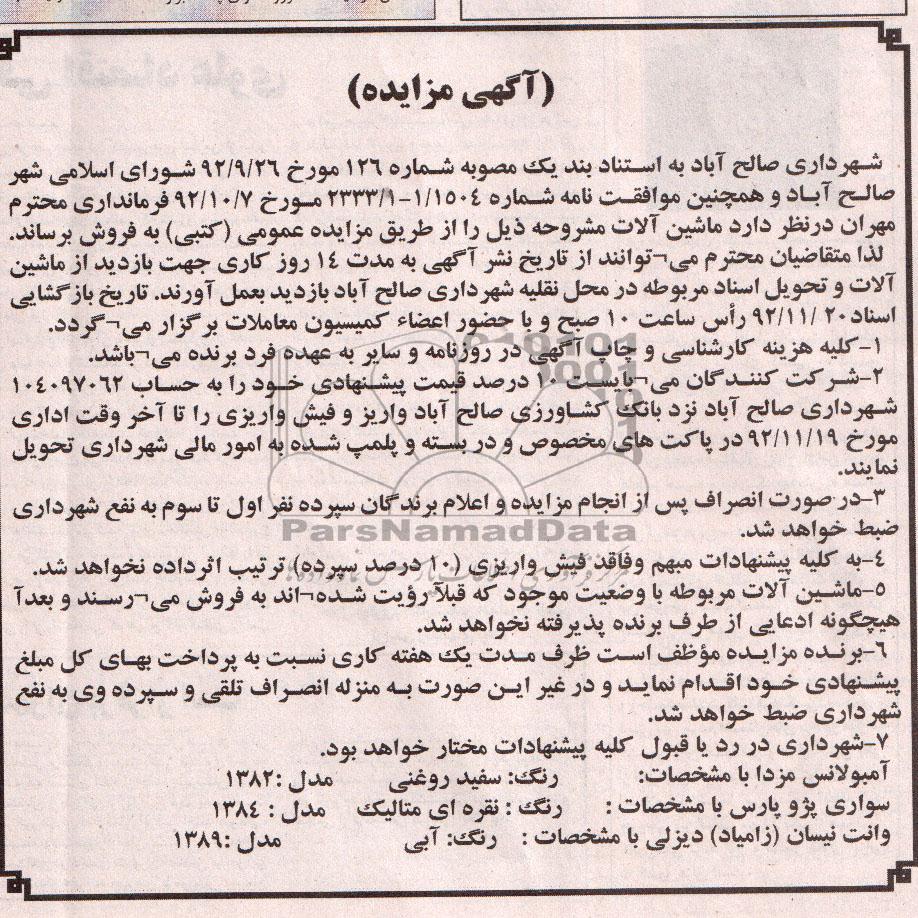 (آگهی مزایده)
شهرداری صالح آباد به استناد بند یک مصوبه شماره ۱۲۶ مورخ ۹۲/۹/۲۶ شورای اسلامی شهر
صالح آباد و همچنین موافقت نامه شماره ۱/۱۵۰۴-۲۳۳۳/۱ مورخ ۹۲/۱۰/۷ فرمانداری محترم
مهران درنظر دارد ماشین آلات مشروحه ذیل را از طریق مزایده عمومی (کتبی) به فروش برساند.
لذا متقاضیان محترم می¬توانند از تاریخ نشر آگهی به مدت ۱۴ روز کاری جهت بازدید از ماشین
آلات و تحویل اسناد مربوطه در محل نقلیه شهرداری صالح آباد بازدید بعمل آورند. تاریخ بازگشایی
اسناد ۲۰ /۹۲/۱۱ رأس ساعت ۱۰ صبح و با حضور اعضاء کمیسیون معاملات برگزار می¬گردد.
۱-کلیه هزینه کارشناسی و چاپ آگهی در روزنامه و سایر به عهده فرد برنده می¬باشد.
۲-شرکت کنندگان می¬بایست ۱۰ درصد قیمت پیشنهادی خود را به حساب ۱۰۴۰۹۷۰۶۲
شهرداری صالح آباد نزد بانک کشاورزی صالح آباد واریز و فیش واریزی را تا آخر وقت اداری
مورخ ۹۲/۱۱/۱۹ در پاکت های مخصوص و در بسته و پلمپ شده به امور مالی شهرداری تحویل
نمایند.
۳-در صورت انصراف پس از انجام مزایده و اعلام برندگان سپرده نفر اول تا سوم به نفع شهرداری
ضبط خواهد شد.
ParsNamadData
۴-به کلیه پیشنهادات مبهم وفاقد فیش واریزی (۱۰ درصد سپرده) ترتیب اثرداده نخواهد شد.
۵-ماشین آلات مربوطه با وضعیت موجود که قبلآ رؤیت شده¬اند به فروش می¬رسند و بعدآ
هیچگونه ادعایی از طرف برنده پذیرفته نخواهد شد.
۶-برنده مزایده مؤظف است ظرف مدت یک هفته کاری نسبت به پرداخت بهای کل مبلغ
پیشنهادی خود اقدام نماید و در غیر این صورت به منزله انصراف تلقی و سپرده وی به نفع
شهرداری ضبط خواهد شد.
۷-شهرداری در رد یا قبول کلیه پیشنهادات مختار خواهد بود.
آمبولانس مزدا با مشخصات: رنگ: سفید روغنی مدل :۱۳۸۲
سواری پژو پارس با مشخصات : رنگ : نقره ای متالیک مدل : ۱۳۸۴
وانت نیسان (زامیاد) دیزلی با مشخصات : رنگ: آبی مدل :۱۳۸۹